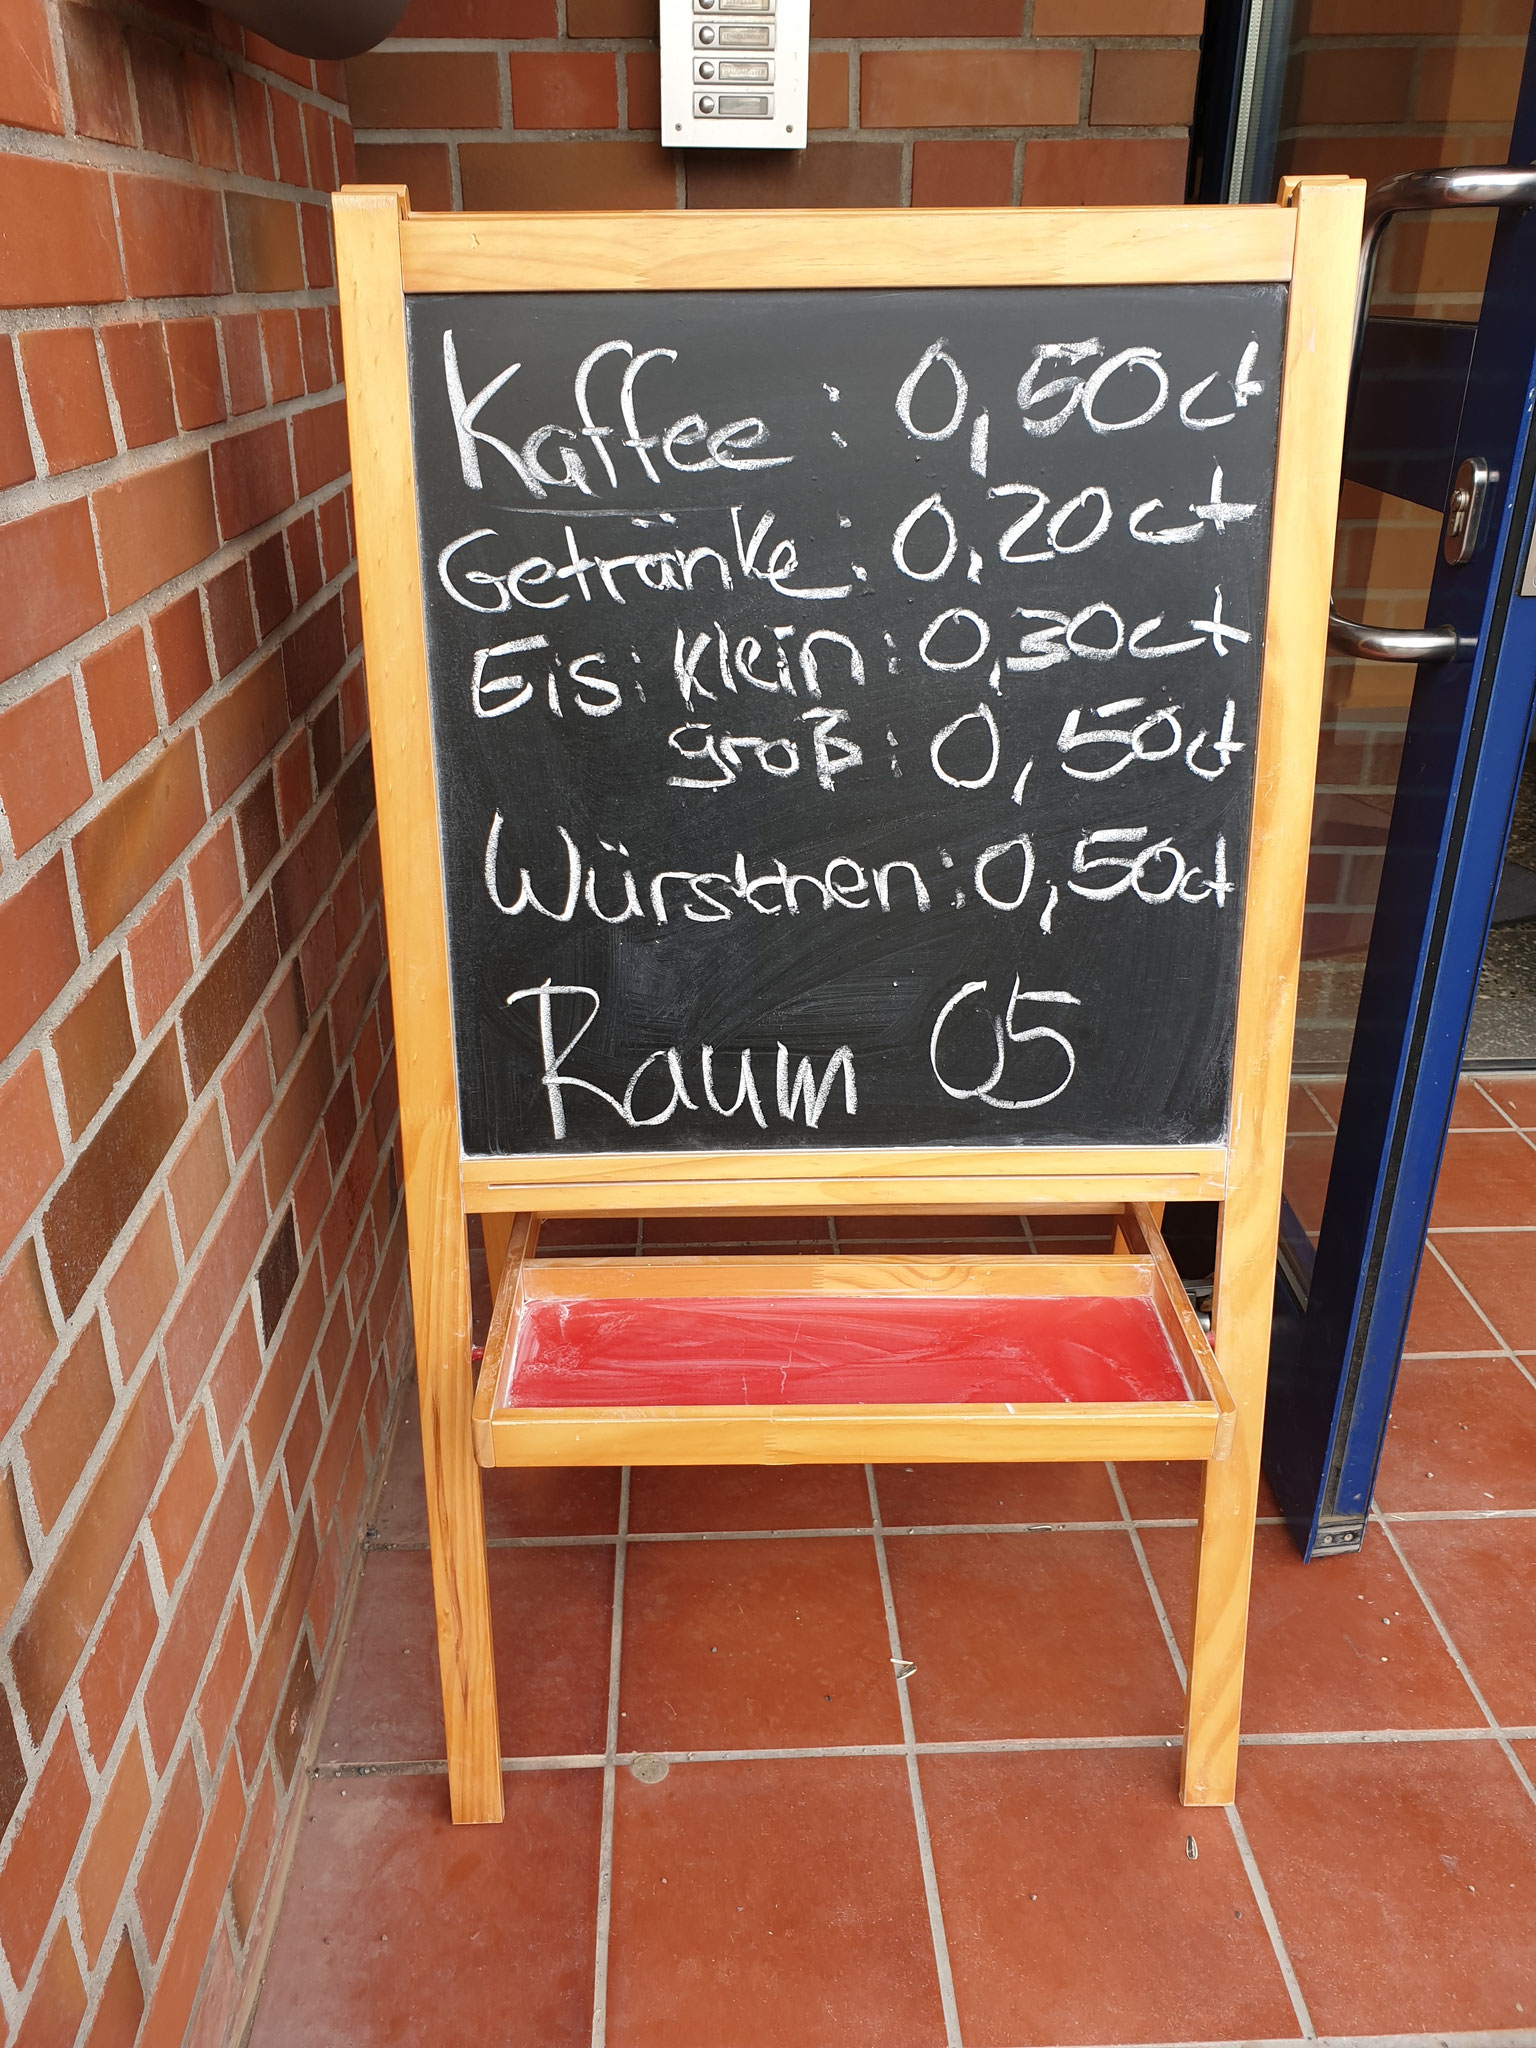 Kaffee: 0,50ct
Getränke: 0,20ct
Eis: klein: 0,30ct
groß: 0,50ct
Würstchen: 0,50ct
Raum 05